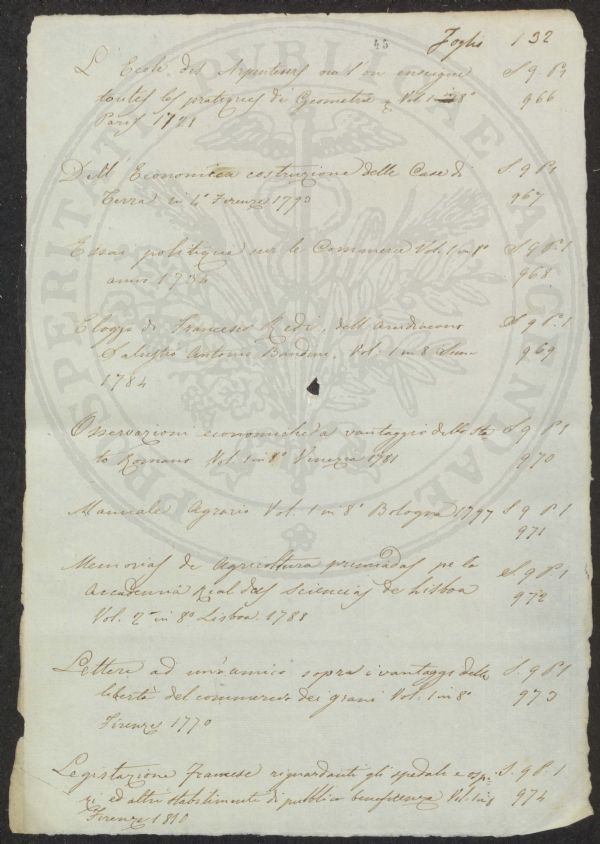 45 Foglio 132
L'Ecole des Arpenteurs ou l'on enseigne S. 9 P. 1
toutes les pratiques de Geometrie Vol. 1 in 8° 966
Paris 1721
Dell' Economica costruzione delle Case di S. 9 P. 1
Terra in 4° Firenze 1793 967
Essai politique sur le Commerce Vol. 1 in 8° S. 9 P. 1
anno 1734 968
Elogio di Francesco Redi, dell' Arcidiacono S. 9 P. 1
Salustio Antonio Bandini, Vol. 1 in 8 Siena 969
1784
Osservazioni economiche a vantaggio dello Sta S. 9 P. 1
to Romano Vol. 1 in 8° Venezia 1781 970
Manuale Agrario Vol. 1 in 8° Bologna 1797 S. 9 P. 1
971
Memorias de Agricoltura premiadas pe la S. 9 P. 1
Accademia Real das Sciencias de Lisboa 972
Vol. 2 in 8° Lisboa. 1788
Lettere ad un'amico sopra i vantaggi della S. 9 P. 1
libertà del commercio dei grani Vol. 1 in 8° 973
Firenze 1770
Legislazione Francese riguardanti gli spedali e ospi- S. 9 P. 1
zi ed altri stabilimenti di pubblica beneficenza Vol. 1 in 8 974
Firenze 1810
PROSPERITATI PUBLICAE AUGENDAE